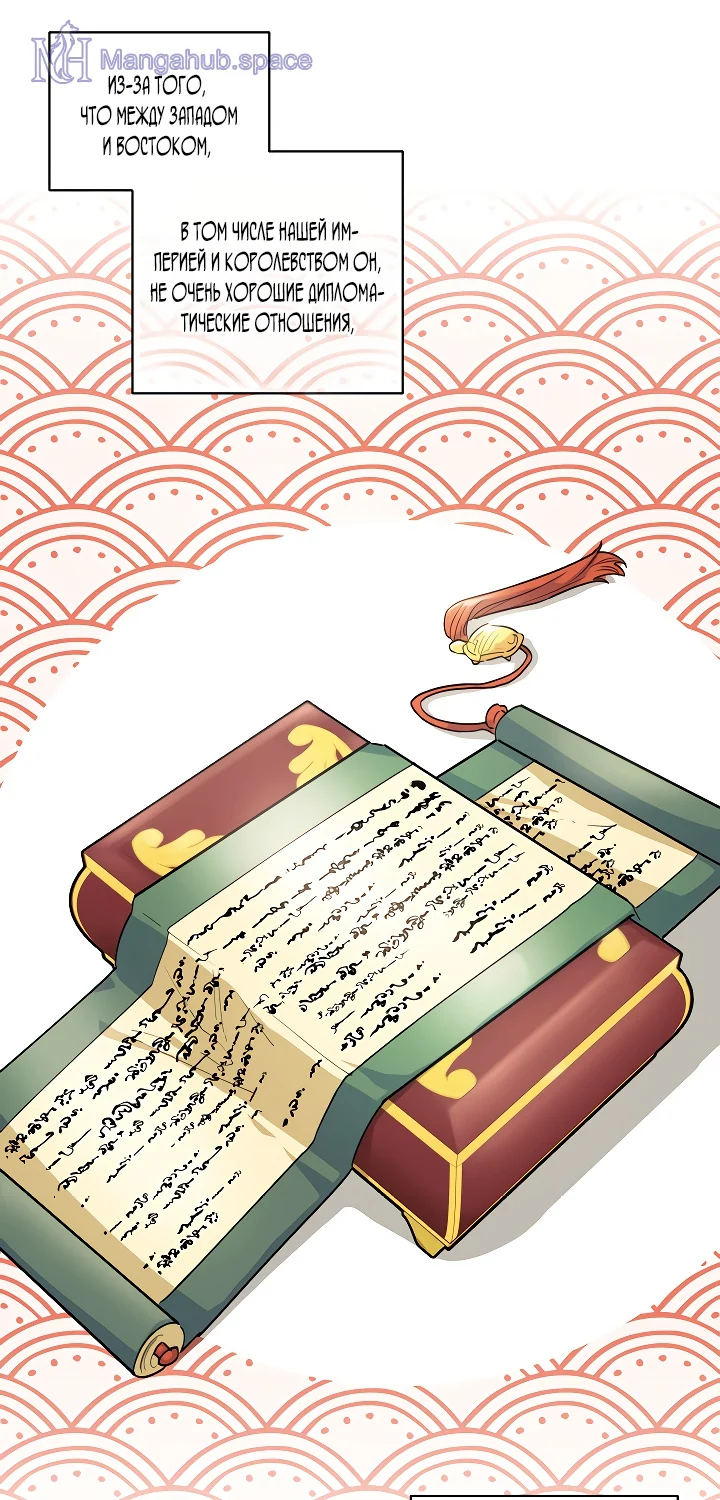 Mangahub.space
ИЗ-ЗА ТОГО,
ЧТО МЕЖДУ ЗАПАДОМ
И ВОСТОКОМ,
В ТОМ ЧИСЛЕ НАШЕЙ ИМ-
ПЕРИЕЙ И КОРОЛЕВСТВОМ ОН,
НЕ ОЧЕНЬ ХОРОШИЕ ДИПЛОМА-
ТИЧЕСКИЕ ОТНОШЕНИЯ,